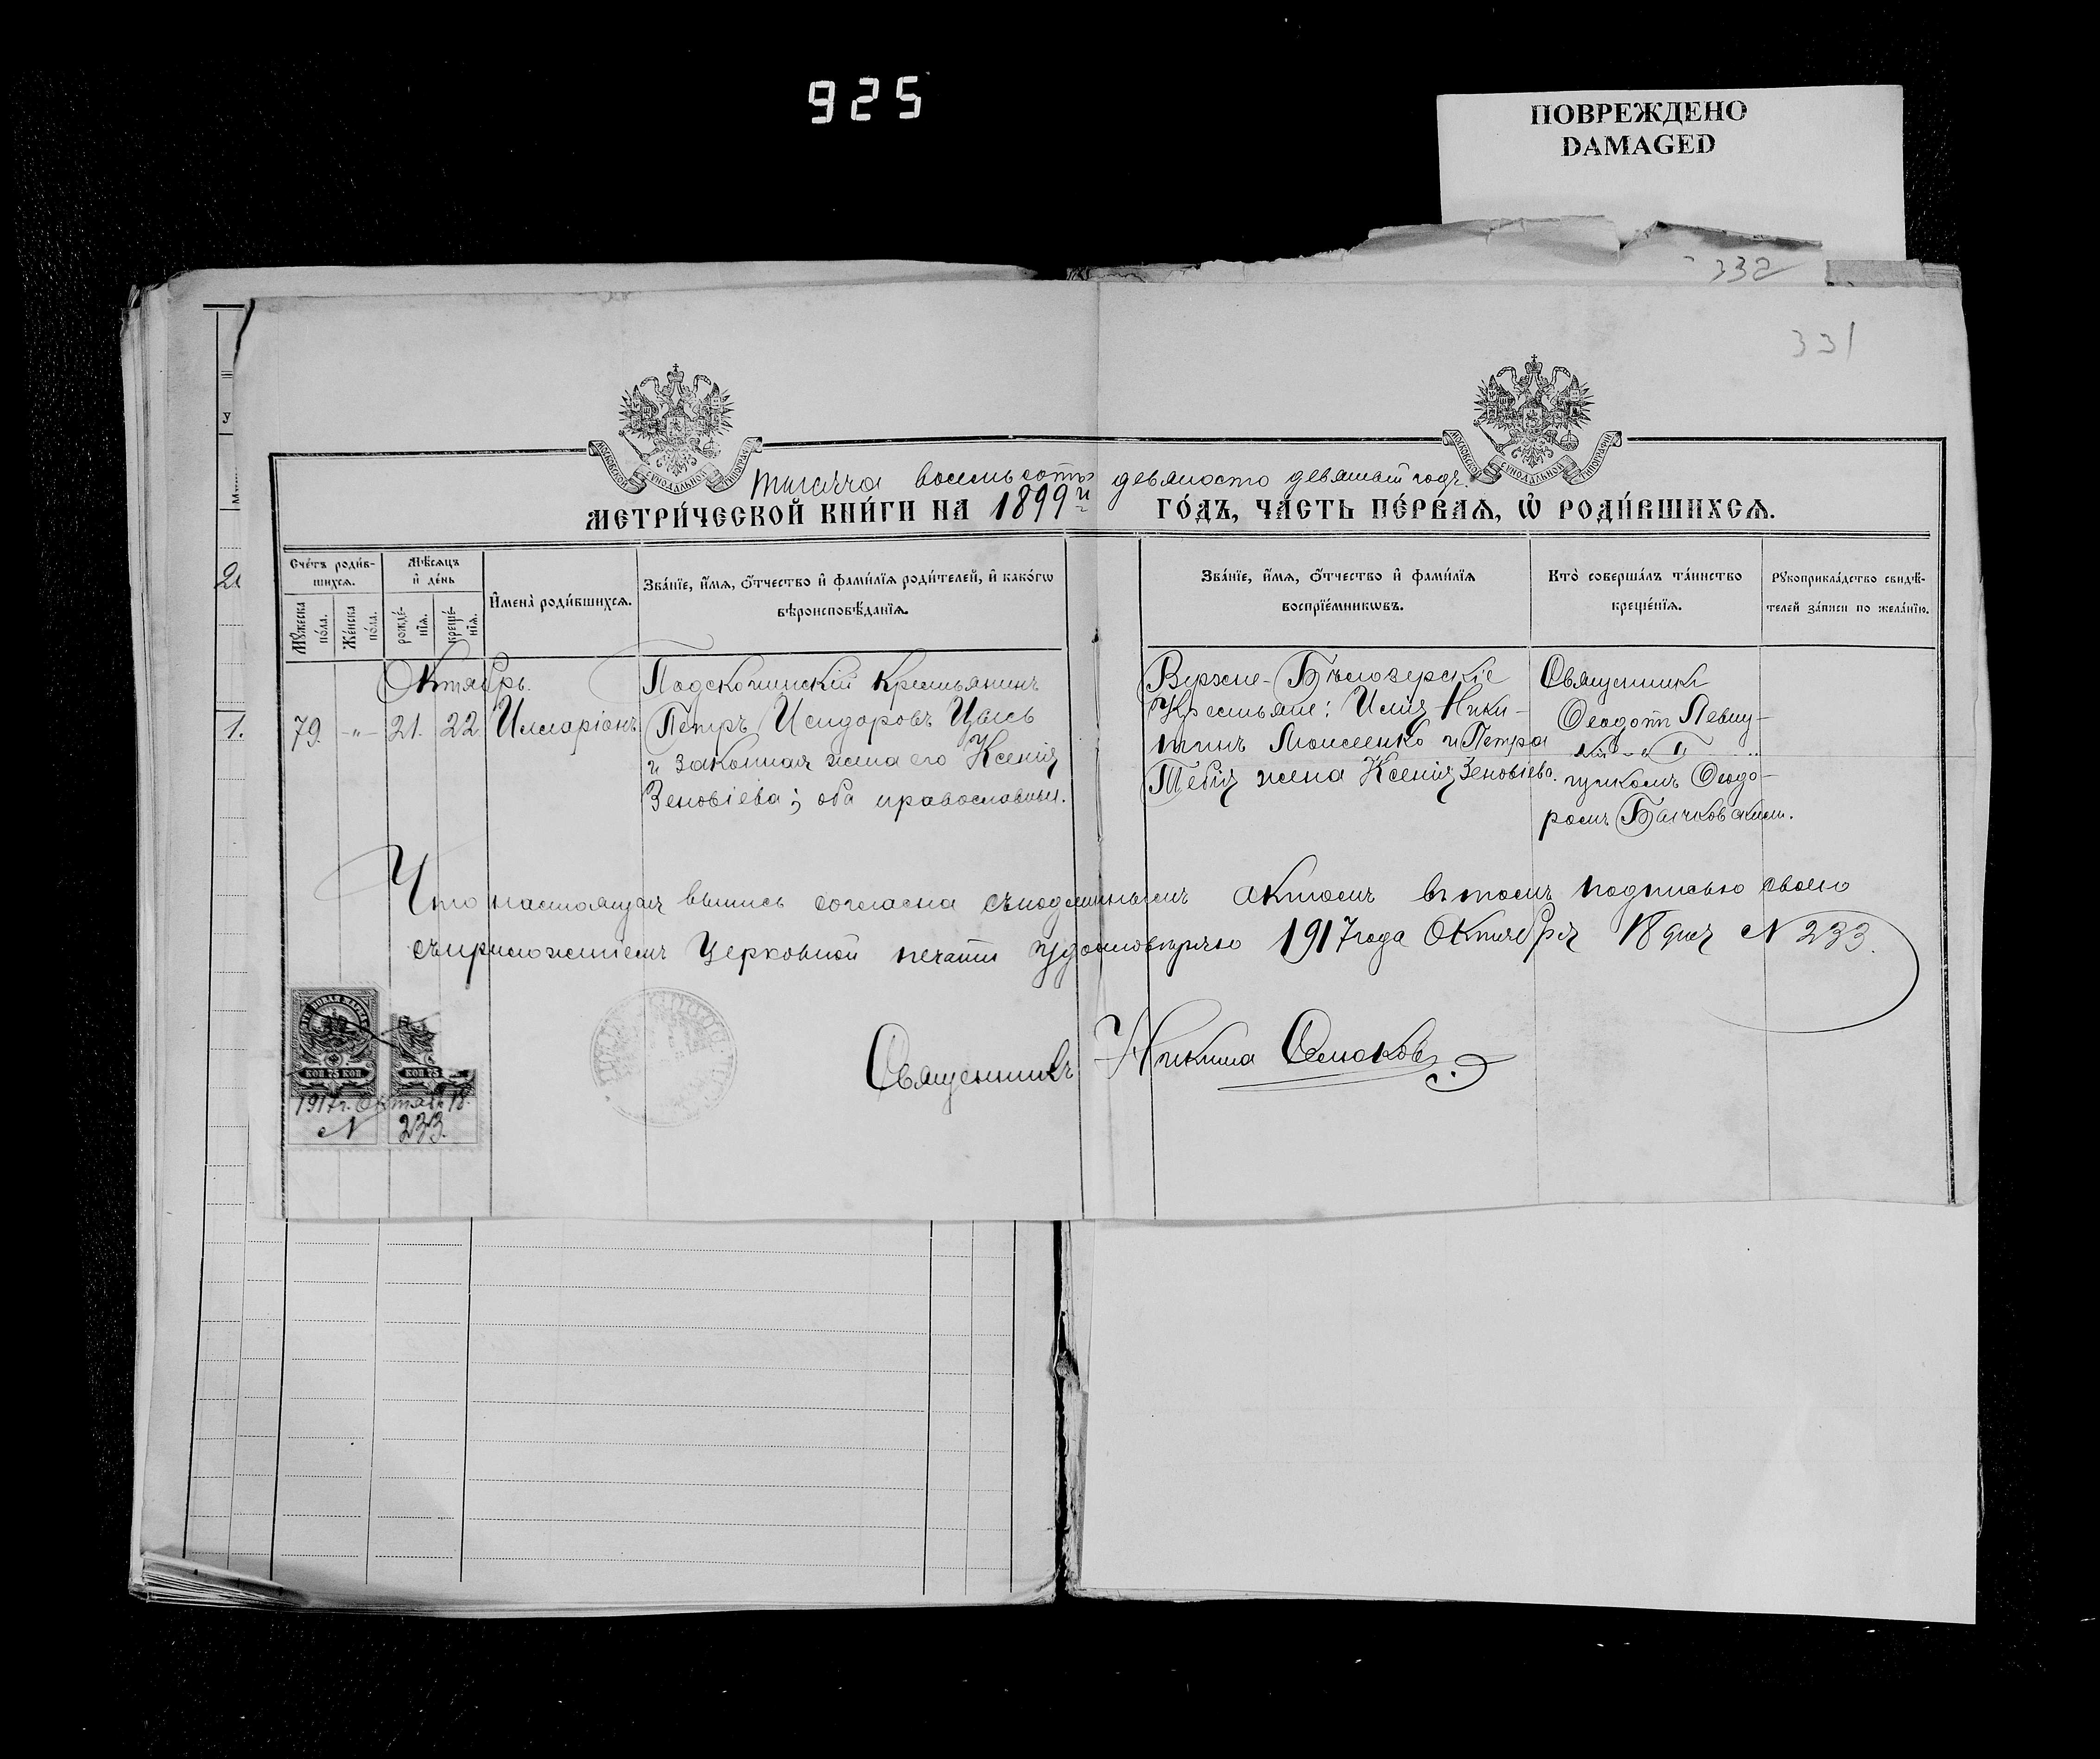 925
ПОВРЕЖДЕНО
DAMAGED
232
331
Тысяча восемьсотъ девяносто девятый годъ.
МЕТРИ́ЧЕСКОЙ КНИ́ГИ НА 1899й ГО́ДЪ, ЧА́СТЬ ПЕ́РВАѦ, Ѡ҆ РОДИ́ВШИХСѦ.
Сче́тъ роди́в-
шихсѧ.
Мѣ́сѧцъ
и҆ де́нь
Мꙋ́жеска
по́ла.
Же́нска
по́ла.
рожде́-
нїѧ.
креще́-
нїѧ.
И҆мена̀ роди́вшихсѧ.
Зва́нїе, и҆́мѧ, ѻ҆́тчество и҆ фами́лїѧ роди́телей, и҆ како́гѡ
вѣроисповѣ́данїѧ.
Зва́нїе, и҆́мѧ, ѻ҆́тчество и҆ фами́лїѧ
воспрїе́мникѡвъ.
Кто̀ соверша́лъ та́инство
креще́нїѧ.
Рꙋкоприкла́дство свидѣ́-
телей за́писи по жела́нїю.
Октябрь.
1. 79. -"- 21. 22. Илларіонъ
Крестьянинъ
Петръ Исидоровъ Цысь
и законная жена его Ксенія
Зеновіева; оба православные.
Верхне-Бѣлозерскіе
Крестьяне: Илія Ники-
тинъ Моисеенко и Петра
жена Ксенія Зеновіева.
Священникъ
Ѳеодотъ Левиц-
Ѳеодо-
ромъ Бычковскимъ.
Что настоящая выпись согласна съ подлиннымъ актомъ въ томъ подписью своею
съ приложеніемъ церковной печати удостовѣряю 1917 года Октября 18 дня N 233.
Священникъ Никита
КОП 75 КОП
КОП 75
1917 г. Октябр. 18.
N 233.